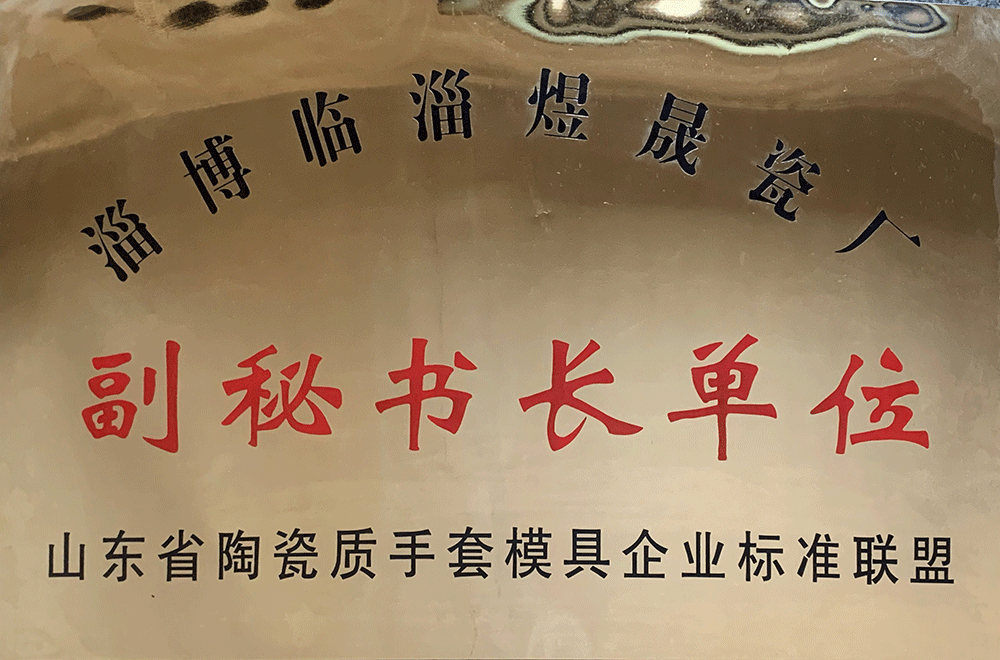 淄博临淄煜晟瓷厂
副秘书长单位
山东省陶瓷质手套模具企业标准联盟